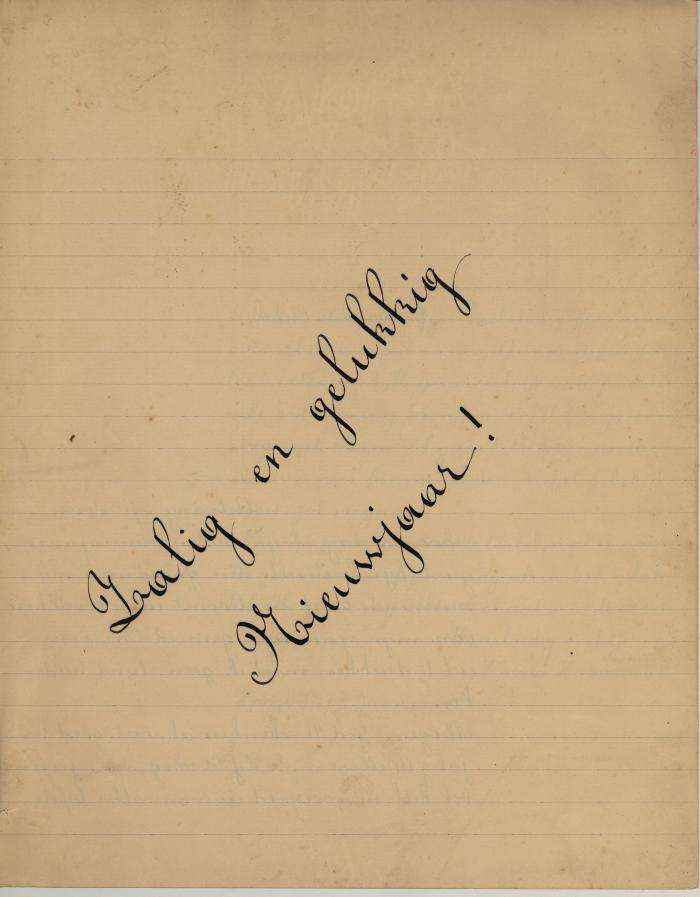 Zalig en gelukkig
Nieuwjaar!